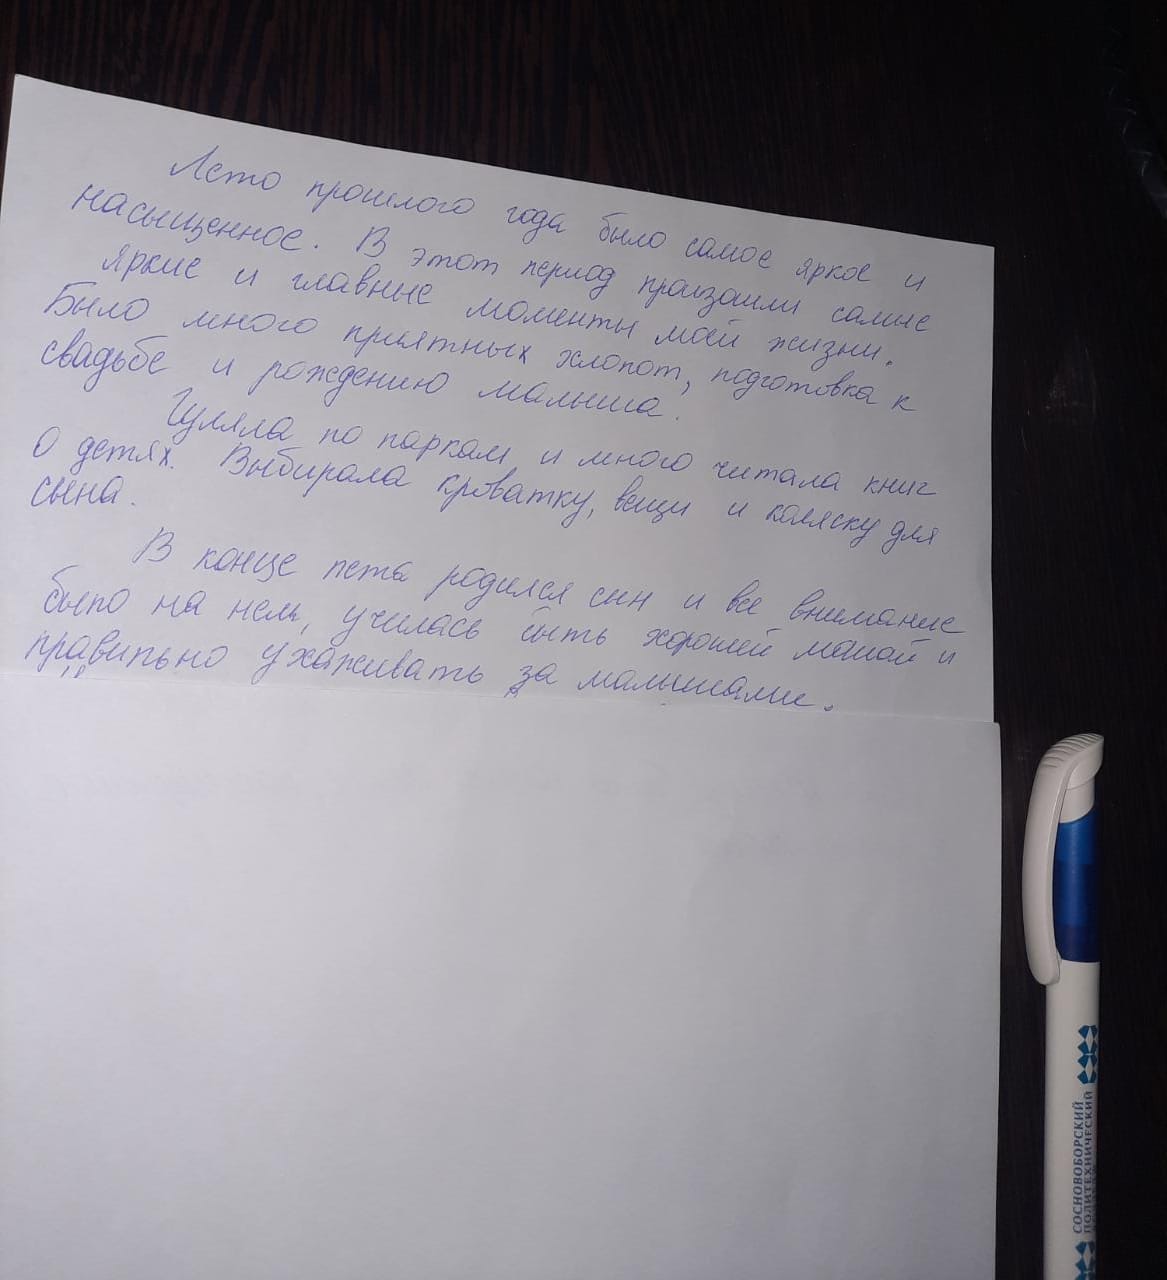 Лето прошлого года было самое яркое и
насыщенное. В этот период произошли самые
яркие и главные моменты моей жизни.
Было много приятных хлопот, подготовка к
свадьбе и рождению малыша.
Гуляла по паркам и много читала книг
о детях. Выбирала кроватку, вещи и коляску для
сына.
В конце лета родился сын и все внимание
было на нем, училась быть хорошей мамой и
правильно ухаживать за малышами.
СОСНОВОБОРСКИЙ
ПОЛИТЕХНИЧЕСКИЙ